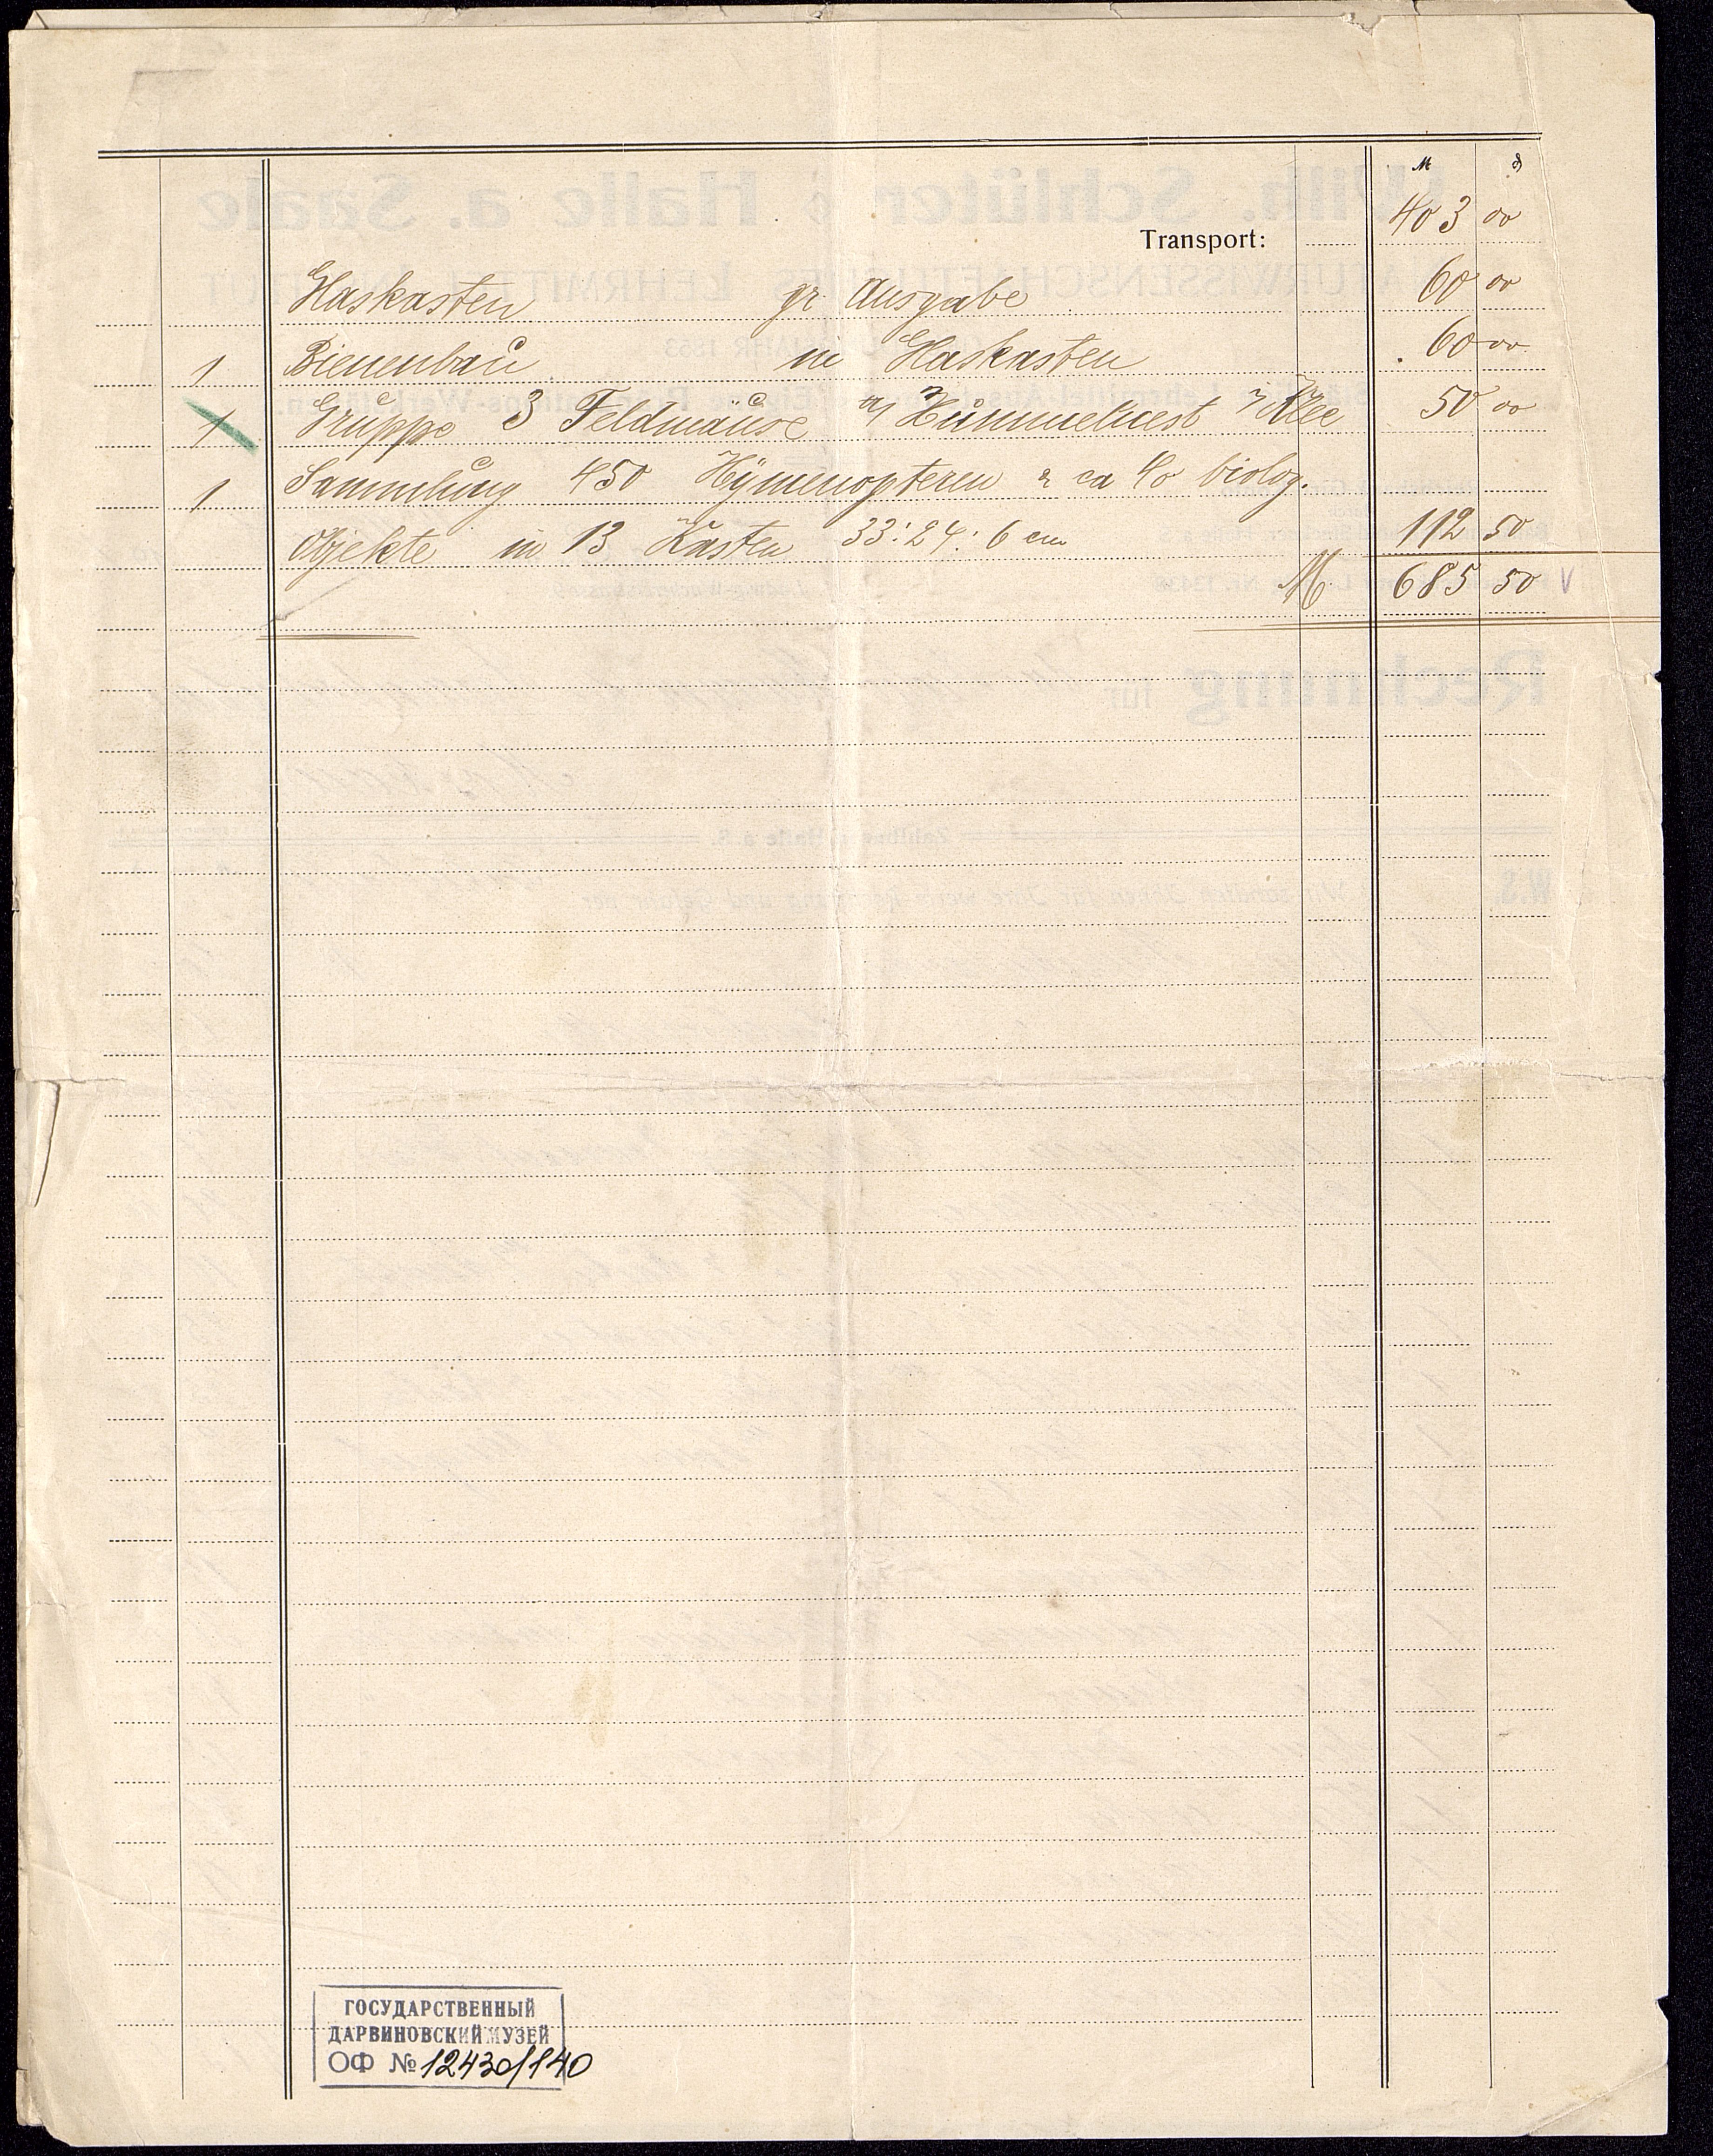 M ₰
Transport: 403 00
Glaskasten gr. Ausgabe 60 00
1 Bienenbau in Glaskasten 60 00
1 Gruppe 3 Feldmäuse Hummelnest Klee 50 00
1 Sammlung 450 Hymenopteren ca 40 biolog.
Objekte in 13 Kästen 33:24:6 cm 112 50
M 685 50 V
ГОСУДАРСТВЕННЫЙ
ДАРВИНОВСКИЙ МУЗЕЙ
ОФ № 12430/140